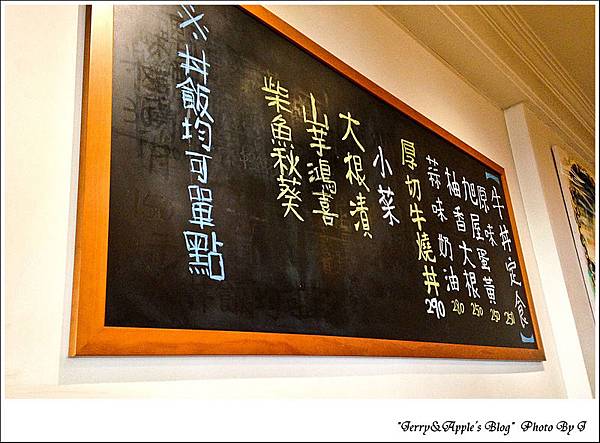 【牛丼定食】
原味
旭屋蛋黃 250
柚香大根 250
蒜味奶油 280
厚切牛燒丼 290
小菜
大根漬
山芋鴻喜
柴魚秋葵
※丼飯均可單點
"Jerry&Apple's Blog" Photo By J